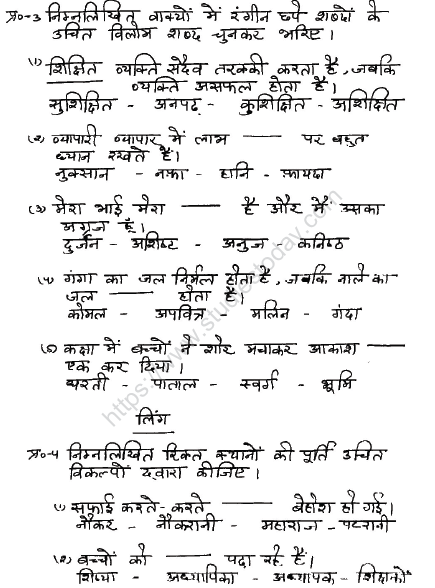 प्र०-३ निम्नलिखित वाक्यों में रंगीन छपे शब्दों के
उचित विलोम शब्द चुनकर भरिए।
(१) शिक्षित व्यक्ति सदैव तरक्की करता है, जबकि
व्यक्ति असफल होता है।
सुशिक्षित - अनपढ़ - कुशिक्षित - अशिक्षित
(२) व्यापारी व्यापार में लाभ —— पर बहुत
ध्यान रखते हैं।
नुकसान - नफ़ा - हानि - फ़ायदा
(३) मेरा भाई मेरा —— है और मैं उसका
अग्रज हूँ।
दुर्जन - अशिष्ट - अनुज - कनिष्ठ
(४) गंगा का जल निर्मल होता है, जबकि नाले का
जल —— होता है।
कोमल - अपवित्र - मलिन - गंदा
(५) कक्षा में बच्चों ने शोर मचाकर आकाश ——
एक कर दिया।
धरती - पाताल - स्वर्ग - भूमि
लिंग
प्र०-४ निम्नलिखित रिक्त स्थानों की पूर्ति उचित
विकल्पों द्वारा कीजिए।
(१) सफ़ाई करते-करते —— बेहोश हो गई।
नौकर - नौकरानी - महाराज - पटरानी
(२) बच्चों को —— पढ़ा रहे हैं।
शिष्या - अध्यापिका - अध्यापक - शिक्षकों
https://www.studiestoday.com